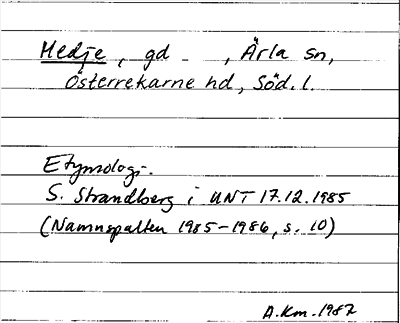 Hedje, gd - , Ärla sn,
Österrekarne hd, Söd. l.
Etymologi.
S. Strandberg i UNT 17.12.1985
(Namnspalten 1985-1986, s. 10)
A.Km. 1987